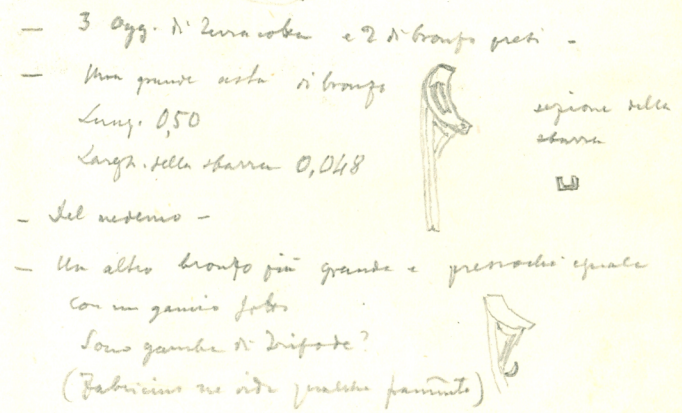 — 3 ogg. di Terracotta e 2 di bronzo presi —
— Una grande asta di bronzo
Lung. 0,50
Largh. della sbarra 0,048
sezione della
sbarra
— Del medesimo —
— Un altro bronzo più grande e pressoché eguale
con un gancio sotto
Sono gambe di Tripode?
(Fabricius ne vide qualche frammto)